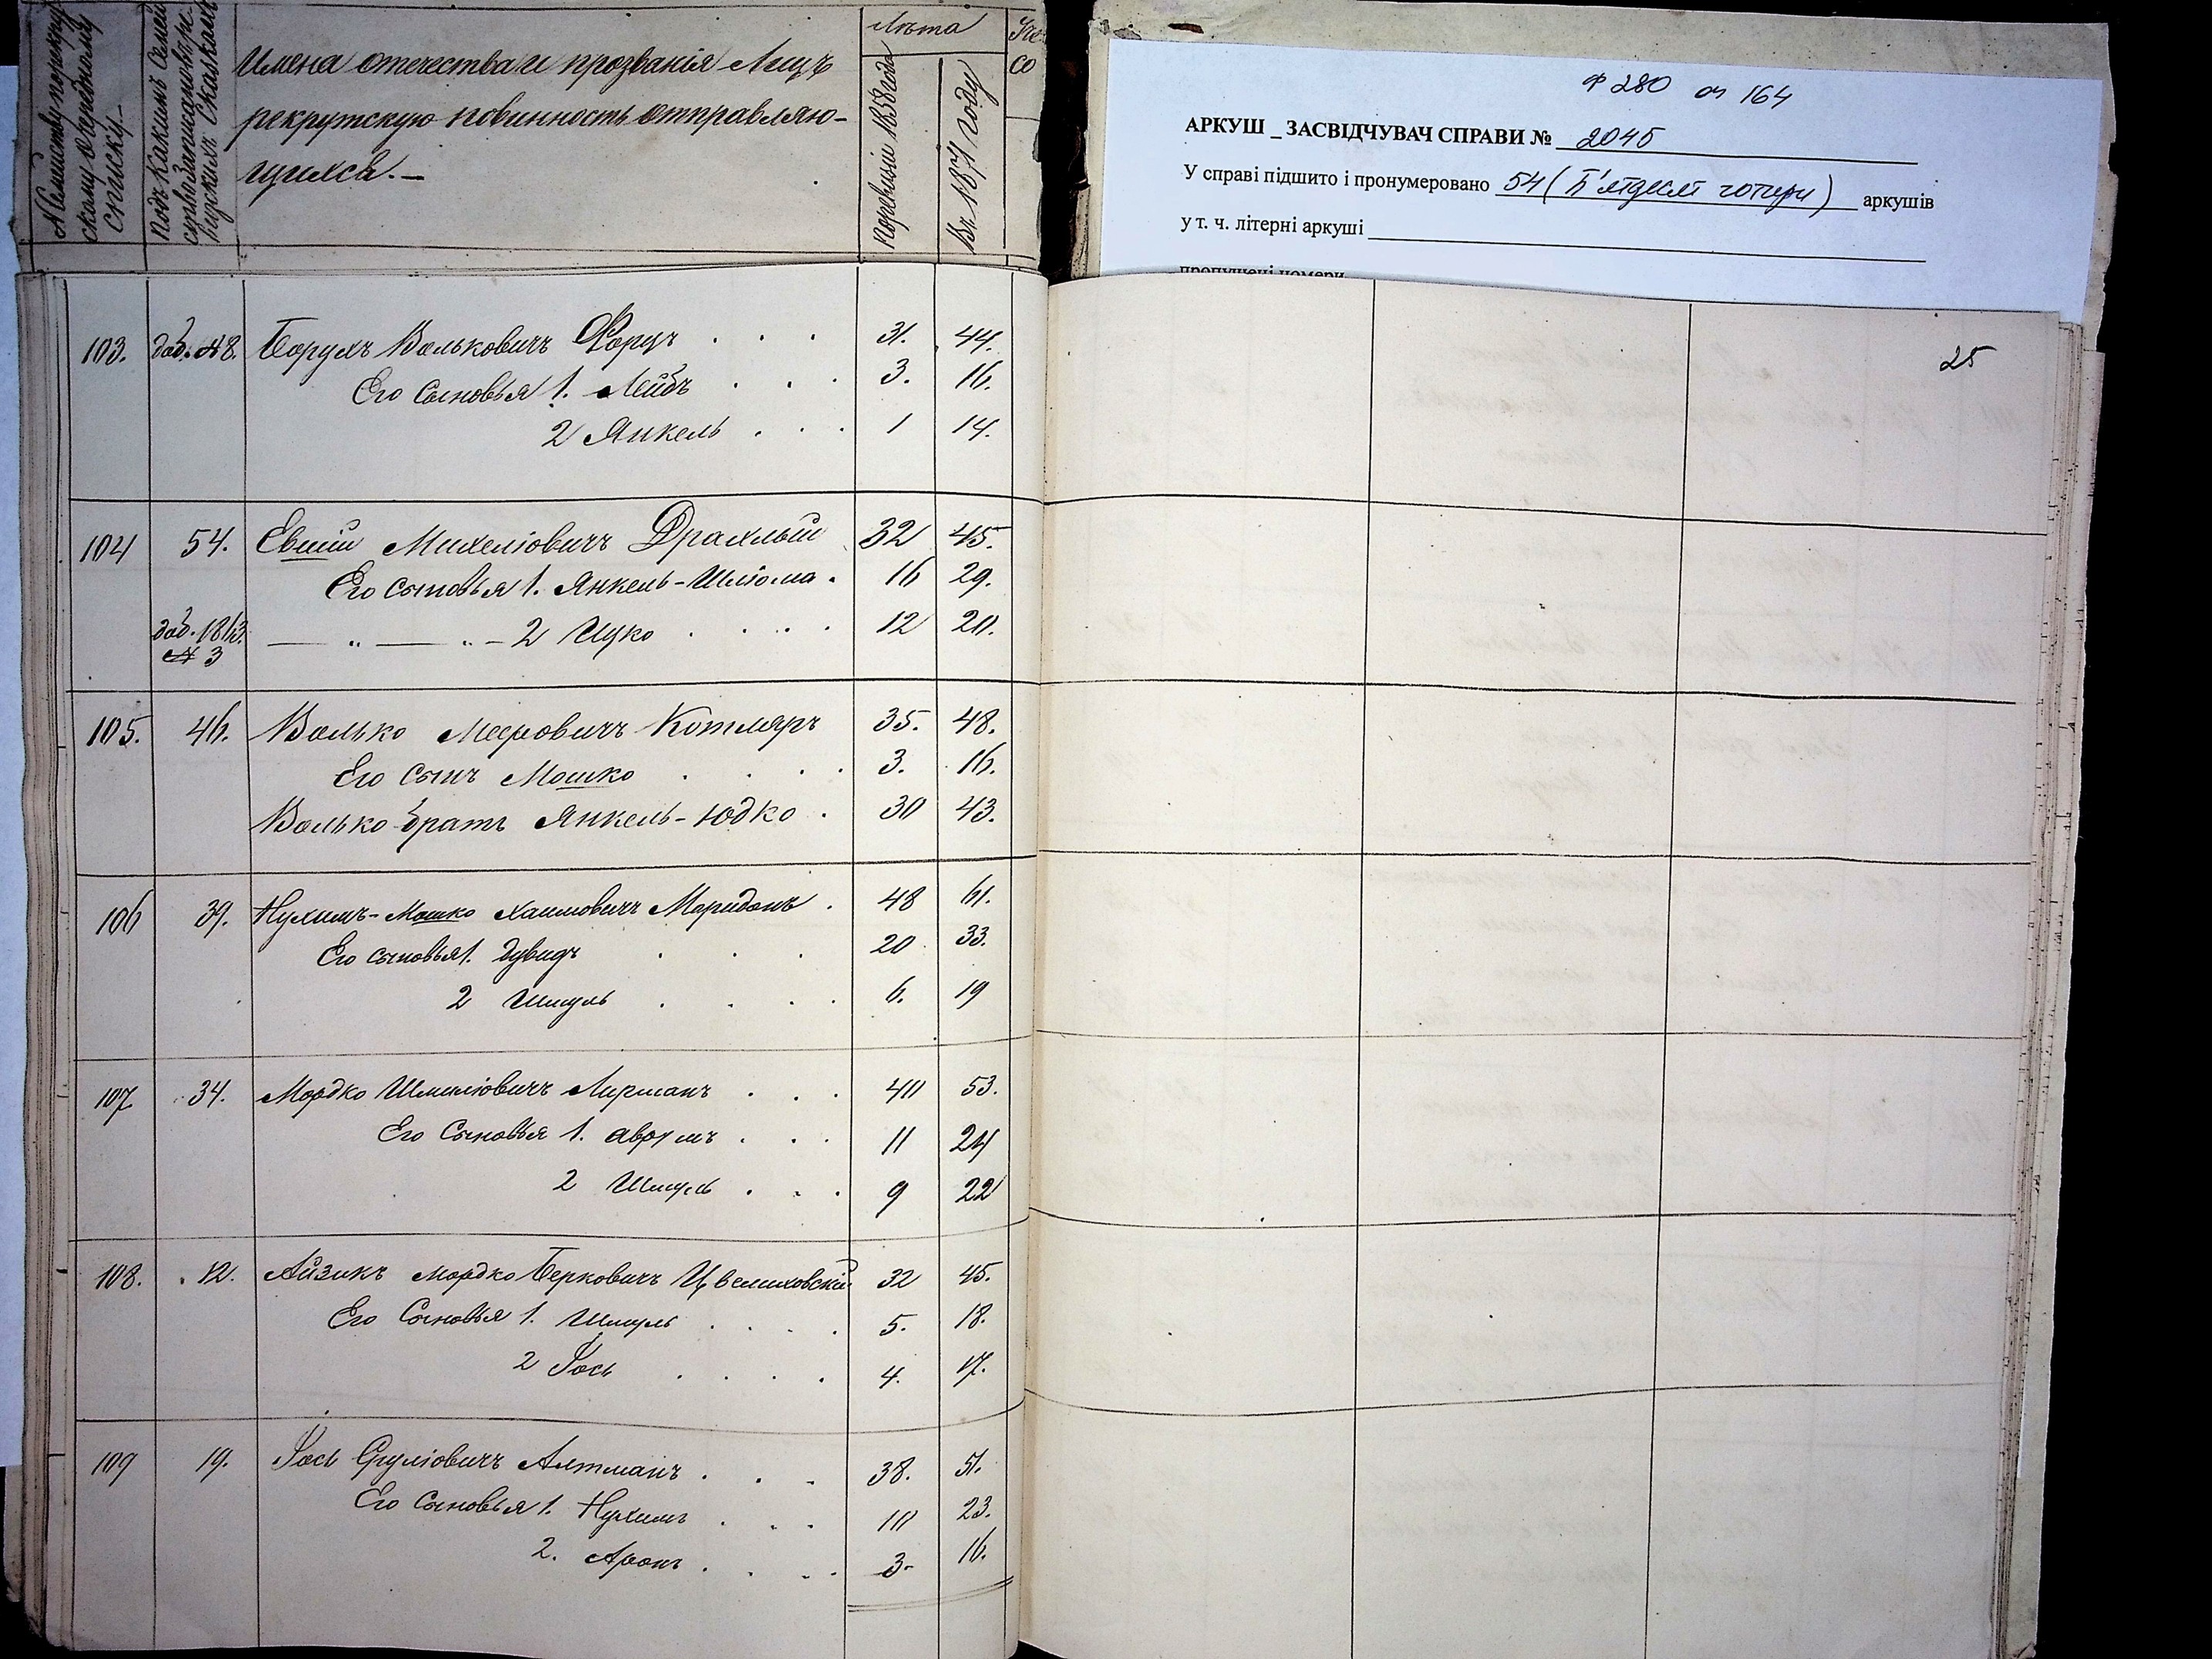 № семейству по рекрутскому очередному списку
Подъ какимъ № семейство записано въ ревизскихъ сказкахъ
Имена отечества и прозванія лицъ
рекрутскую повинность отправляю-
щихся.—
Лѣта
По ревизіи 1858 года
Въ 1871 году
со
Ф 280 оп 164
АРКУШ _ ЗАСВІДЧУВАЧ СПРАВИ № 2045
У справі підшито і пронумеровано 54 (П'ятдесят чотири) аркушів
у т. ч. літерні аркуші
пропущені номери
25
103. доб. № 8. Борухъ Вольковичъ 31. 44.
Его сыновья 1. Лейбъ 3. 16.
2 Янкель 1 14.
104 54. Евшій Михеліовичъ Драхлый 32 45.
Его сыновья 1. Янкель-Шліома. 16 29.
доб. 1863. № 3 — „ — „ — 2 Ицко 12 20.
105. 46. Волько Мееровичъ Котляръ 35. 48.
Его сынъ Мошко 3. 16.
Волько братъ Янкель-Юдко 30 43.
106 39. Нухимъ-Мошко Хаимовичъ Меридонъ 48 61.
Его сыновья 1. Дувидъ 20 33.
2 Шмуль 6. 19
107 34. Мордко Шмиліовичъ Лирманъ 40 53.
Его Сыновья 1. Аврумъ 11 24
2 Шмуль 9 22
108. 12. Айзикъ Мордко Берковичъ Цвелиховскій 32 45.
Его Сыновья 1. Шмуль 5. 18.
2 Іось 4. 17.
109 19. Іось Сруліовичъ Алтманъ 38. 51.
Его Сыновья 1. Нухимъ 10 23.
2. Аронъ 3- 16.